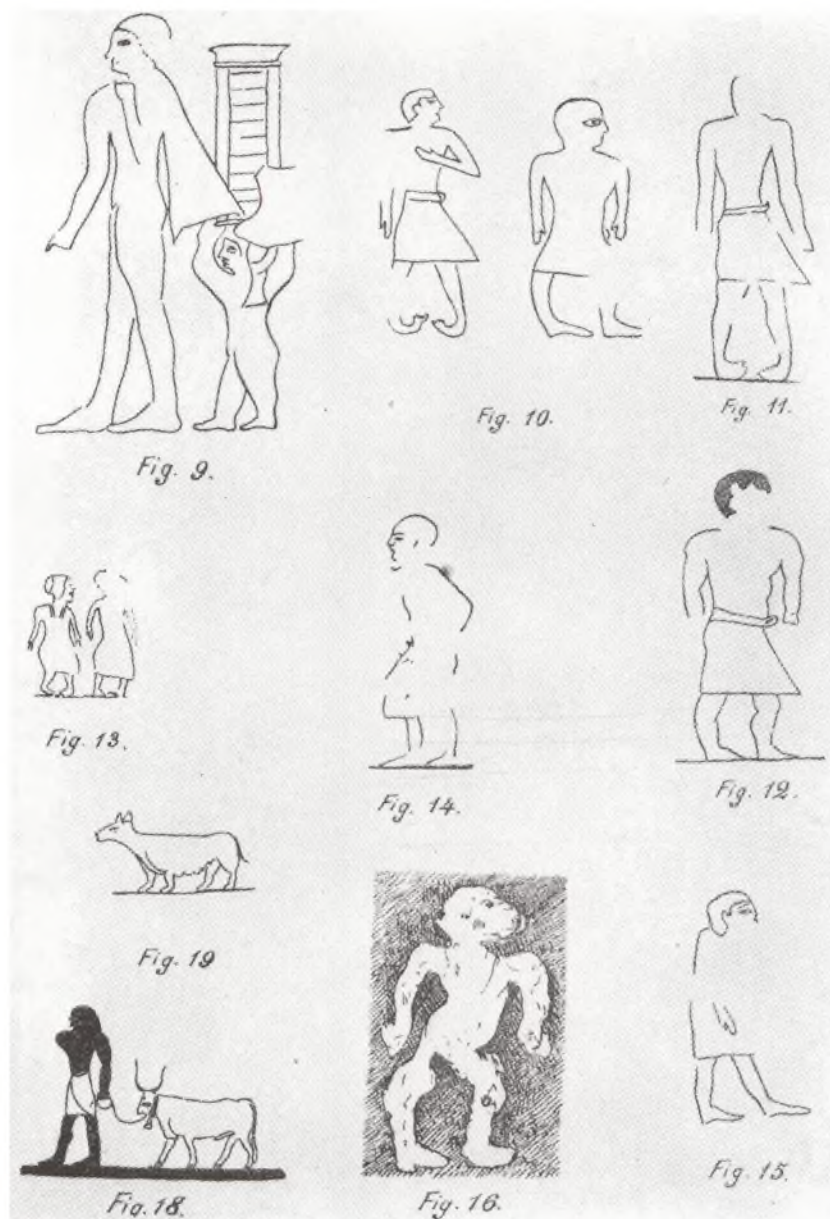 Fig. 9.
Fig. 10.
Fig. 11.
Fig. 13.
Fig. 14.
Fig. 12.
Fig. 19
Fig. 18.
Fig. 16.
Fig. 15.